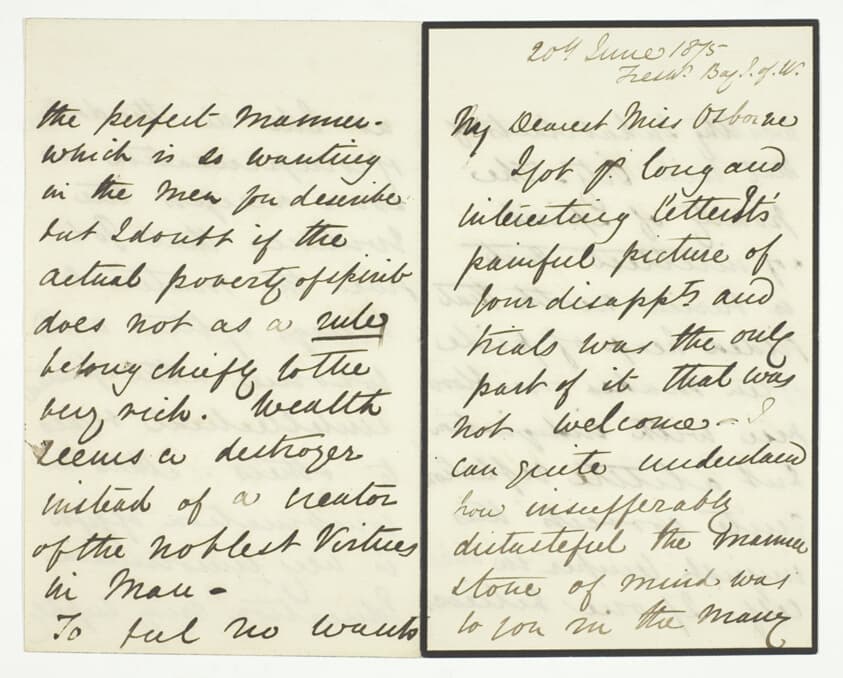 20th June 1875
Freshr. Bay I. of W.
My Dearest Miss Osborne
I got yr long and
interesting letter Its
painful picture of
your disappts and
trials was the only
part of it that was
not welcome - I
can quite understand
how insufferably
distasteful the manner
& tone of mind was
to you in the many
the perfect manner -
which is so wanting
in the men you describe
but I doubt if the
actual poverty of spirit
does not as a rule
belong chiefly to the
very rich. Wealth
seems a destroyer
instead of a creator
of the noblest Virtues
in Man -
To feel no wants